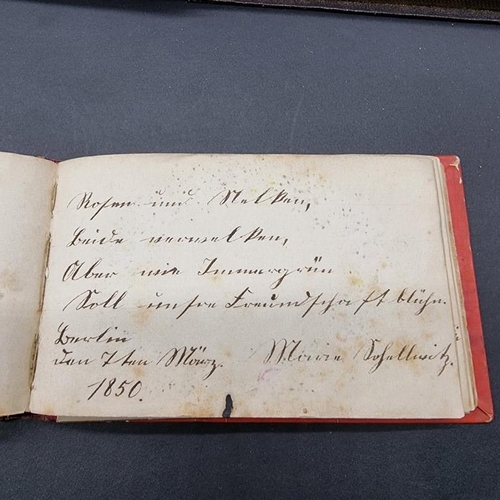 Rosen und Nelken,
beide verwelken,
Aber wie Immergrün
Soll unsre Freundschaft blühn.
Berlin
den 7ten März. Marie Schellwitz.
1850.